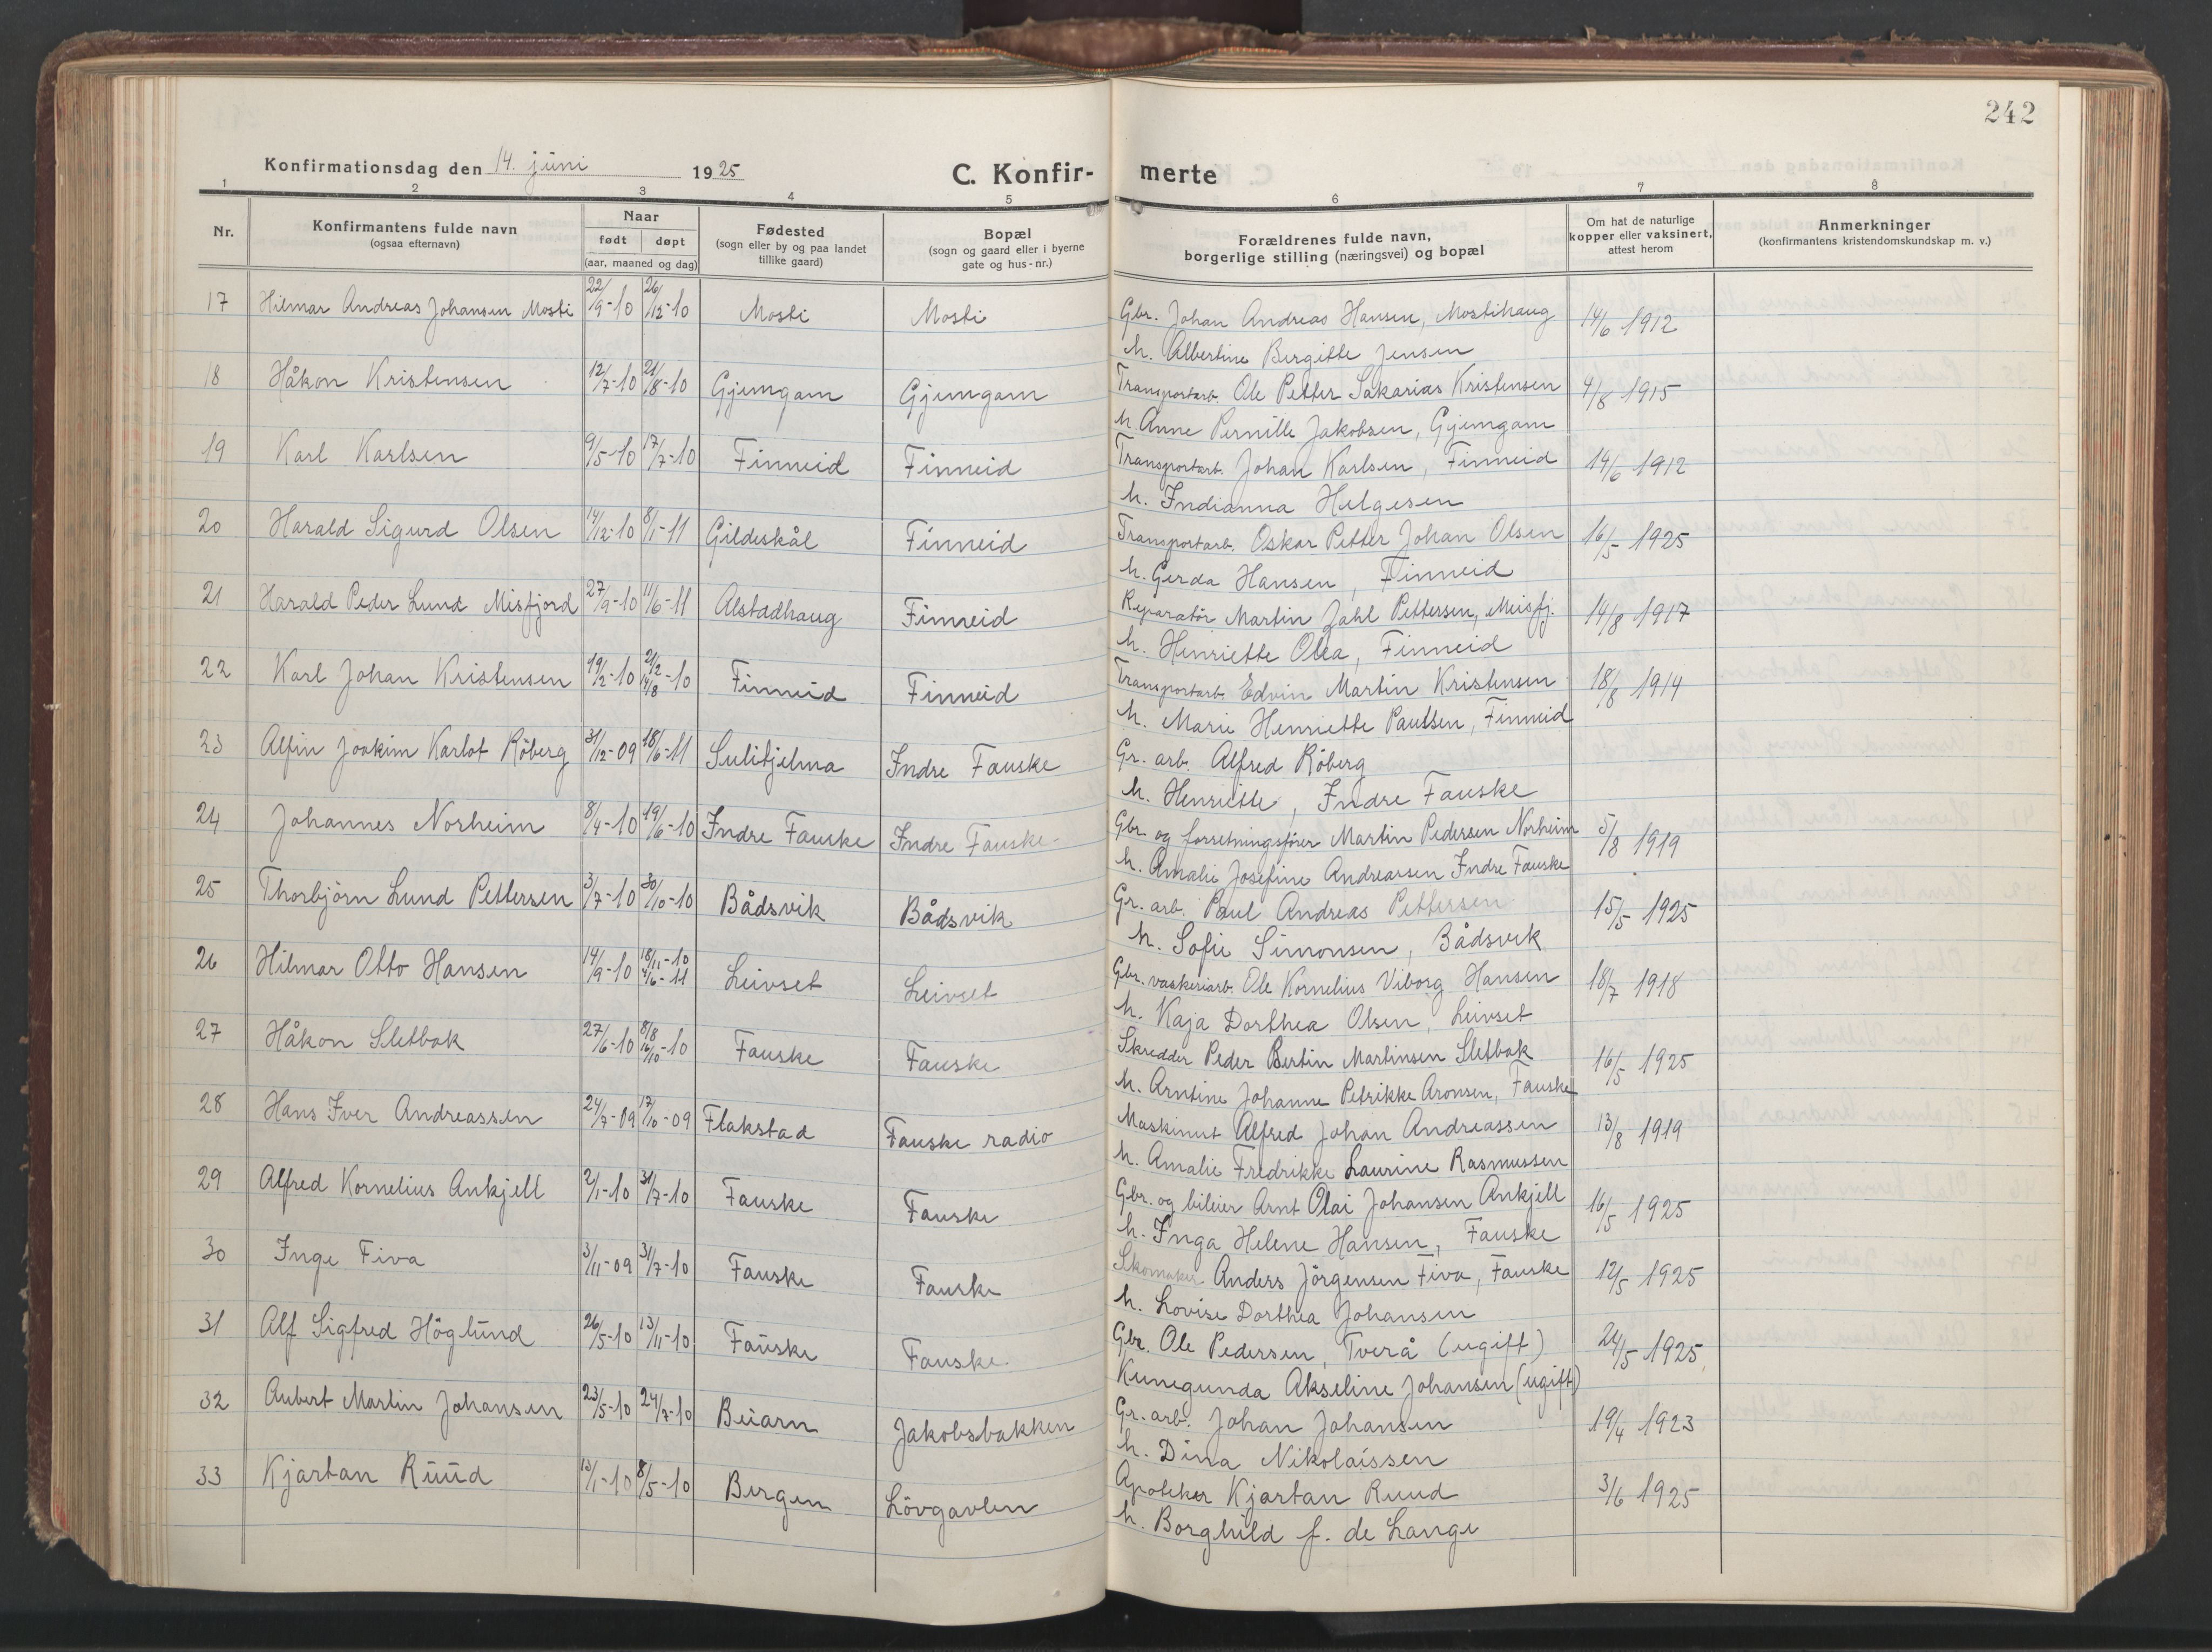 242
Konfirmationsdag den 14. juni 1925
C. Konfir- merte
1 2 3 4 5 6 7 8
Nr.
Konfirmantens fulde navn
(ogsaa efternavn)
Naar
født døpt
(aar, maaned og dag)
Fødested
(sogn eller by og paa landet
tillike gaard)
Bopæl
(sogn og gaard eller i byerne
gate og hus-nr.)
Forældrenes fulde navn,
borgerlige stilling (næringsvei) og bopæl
Om hat de naturlige
kopper eller vaksinert,
attest herom
Anmerkninger
(konfirmantens kristendomskundskap m. v.)
17 Hilmar Andreas Johansen Mosti 22/9-10 26/12-10 Mosti Mosti Gbr. Johan Andreas Hansen, Mostihaug 14/6 1912
h. Albertine Bergitte Jensen
18 Håkon Kristensen 12/7-10 21/8-10 Gjemgam Gjemgam Transportarb. Ole Petter Sakarias Kristensen 4/8 1915
h. Anne Pernille Jakobsen, Gjemgam
19 Karl Karlsen 9/5-10 17/7-10 Finneid Finneid Transportarb. Johan Karlsen, Finneid 14/6 1912
h. Indianna Helgesen
20 Harald Sigurd Olsen 14/12-10 8/1-11 Gildeskål Finneid Transportarb. Oskar Petter Johan Olsen 16/5 1925
h. Gerda Hansen, Finneid
21 Harald Peder Lund Misfjord 27/9-10 11/6-11 Alstadhaug Finneid Reparatör Martin Dahl Pettersen, Meisfj. 14/8 1917
h. Henriette Olea, Finneid
22 Karl Johan Kristensen 19/2-10 21/2 14/8-10 Finneid Finneid Transportarb. Edvin Martin Kristensen 18/8 1914
h. Marie Henriette Paulsen, Finneid
23 Alfin Joakim Karlot Röberg 31/12-09 18/6-11 Sulitjelma Indre Fauske Gr. arb. Alfred Röberg
h. Henriette, Indre Fauske
24 Johannes Norheim 8/4-10 19/6-10 Indre Fauske Indre Fauske Gbr. og forretningsfører Martin Pedersen Norheim 5/8 1919
h. Amalie Josefine Andreassen Indre Fauske
25 Thorbjörn Lund Pettersen 3/7-10 30/10-10 Bådsvik Bådsvik Gr. arb. Paul Andreas Pettersen 15/5 1925
h. Sofie Simonsen, Bådsvik
26 Hilmar Otto Hansen 14/9-10 18/11-10 4/6-11 Leivset Leivset Gbr. vaskeriarb. Ole Kornelius Viborg Hansen 18/7 1918
h. Kaja Dorthea Olsen, Leivset
27 Håkon Sletbak 27/6-10 8/8 16/10-10 Fauske Fauske Skredder Peder Bertin Martinsen Sletbak 16/5 1925
h. Arntine Johanne Petrikke Aronsen, Fauske
28 Hans Iver Andreassen 24/7-09 17/10-09 Flakstad Fauske radio Maskinist Alfred Johan Andreassen 13/8 1919
h. Amalie Fredrikke Laurine Rasmussen
29 Alfred Kornelius Ankjell 2/1-10 31/7-10 Fauske Fauske Gbr. og bileier Arnt Olai Johansen Ankjell 16/5 1925
h. Inga Helene Hansen, Fauske
30 Inge Fiva 3/11-09 31/7-10 Fauske Fauske Skomaker Anders Jörgensen Fiva, Fauske 12/5 1925
h. Lovise Dorthea Johansen
31 Alf Sigfred Höglund 26/5-10 13/11-10 Fauske Fauske Gbr. Ole Pedersen, Tverå (ugift) 24/5 1925
Kunegunda Akseline Johansen (ugift)
32 Aubert Martin Johansen 23/5-10 24/7-10 Beiarn Jakobsbakken Gr. arb. Johan Johansen 19/4 1923
h. Dina Nikolaissen
33 Kjartan Ruud 13/1-10 8/5-10 Bergen Lövgavlen Apoteker Kjartan Ruud 3/6 1925
h. Borghild f. de Lange